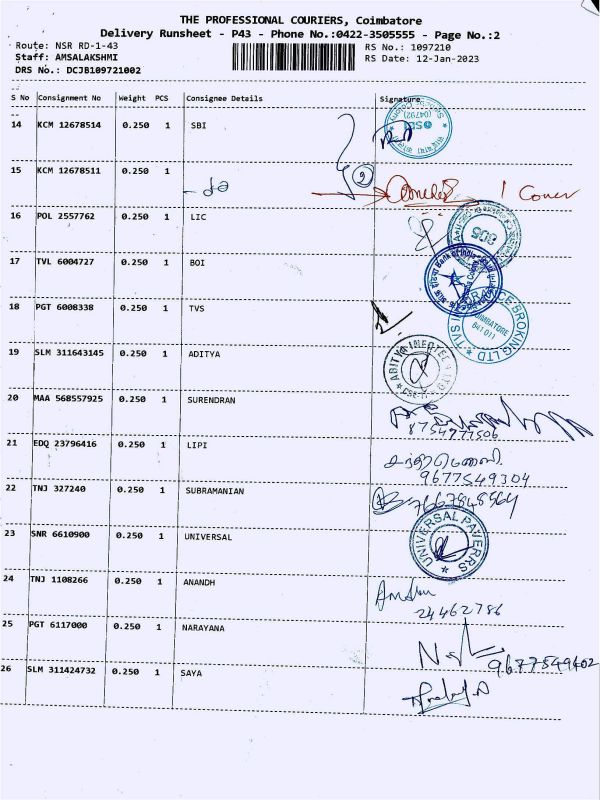 THE PROFESSIONAL COURIERS, Coimbatore
Delivery Runsheet - P43 - Phone No.:0422-3505555 - Page No.:2
Route: NSR RD-1-43 RS No.: 1097210
Staff: AMSALAKSHMI RS Date: 12-Jan-2023
DRS No.: DCJB109721002
S No Consignment No Weight PCS Consignee Details Signature
14 KCM 12678514 0.250 1 SBI
15 KCM 12678511 0.250 1
1 Cover
16 POL 2557762 0.250 1 LIC
17 TVL 6004727 0.250 1 BOI
18 PGT 6008338 0.250 1 TVS
19 SLM 311643145 0.250 1 ADITYA
20 MAA 568557925 0.250 1 SURENDRAN
8754977506
21 EDQ 23796416 0.250 1 LIPI
9677549304
22 TNJ 327240 0.250 1 SUBRAMANIAN
7667848564
23 SNR 6610900 0.250 1 UNIVERSAL
UNIVERSAL PAVERRS
24 TNJ 1108266 0.250 1 ANANDH
24462786
25 PGT 6117000 0.250 1 NARAYANA
9677549402
26 SLM 311424732 0.250 1 SAYA